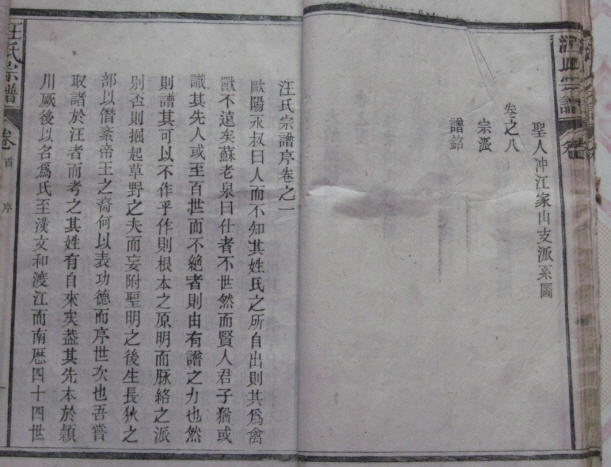 汪氏宗譜
聖人冲江家山支派系圖
卷之八
宗派
譜銘
汪氏宗譜序卷之一
歐陽永叔曰人而不知其姓氏之所自出則其為禽
獸不遠矣蘇老泉曰仕者不世然而賢人君子猶或
識其先人或至百世而不絕者則由有譜之力也然
則譜其可以不作乎作則根本之原明而脉絡之派
別否則掘起草野之夫而妄附聖明之後生長狄之
部以僭紊帝王之裔何以表功德而序世次也吾嘗
取諸於汪者而考之其姓有自來矣蓋其先本於潁
川厥後以名為氏至漢文和渡江而南歷四十四世
汪氏宗譜
卷首
序